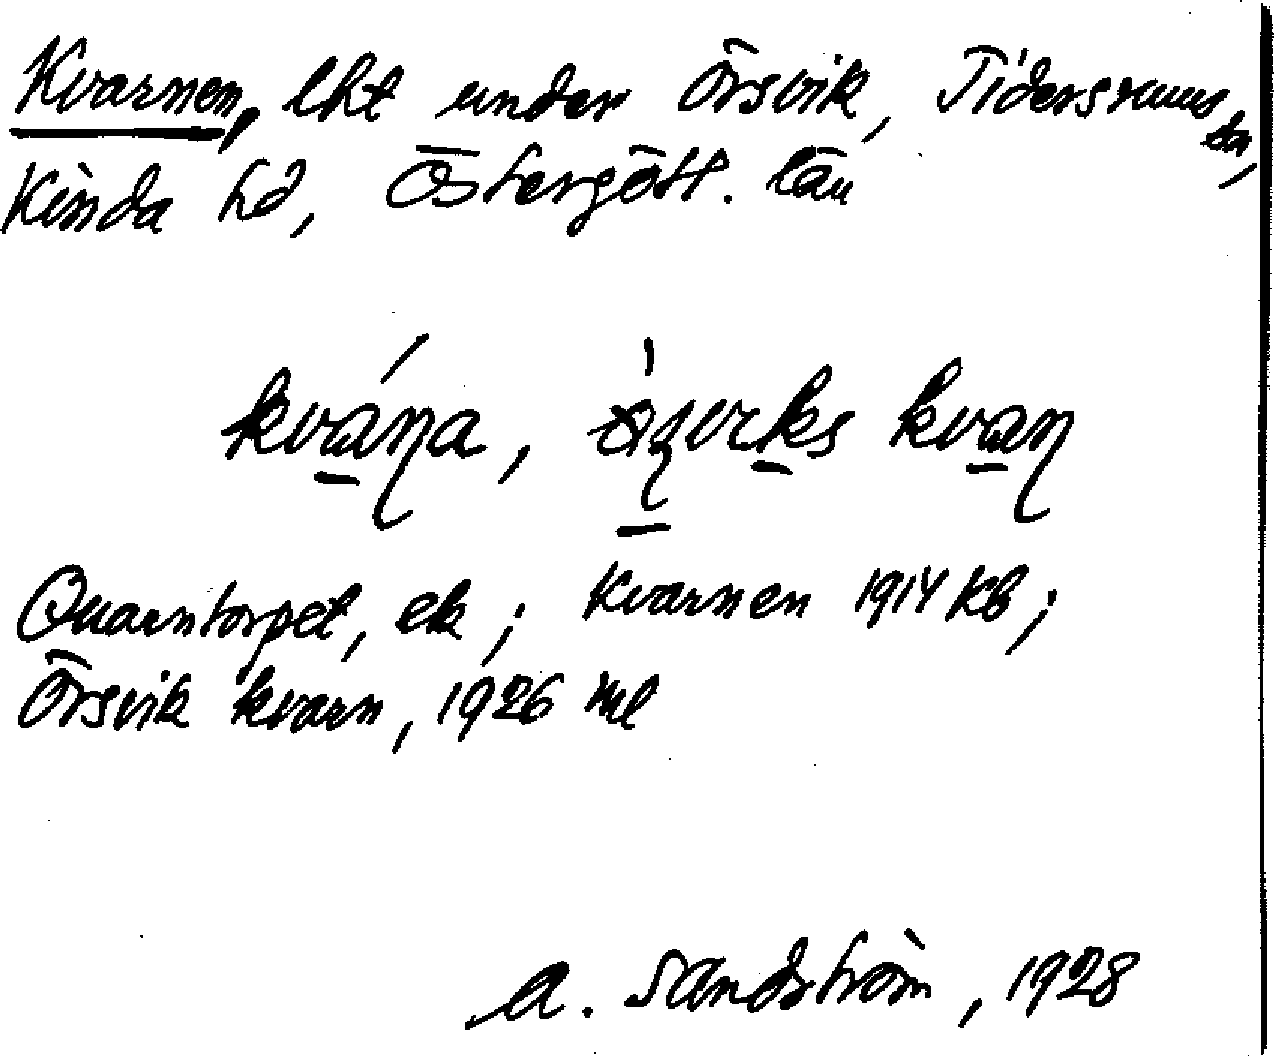 Kvarnen, lht under Örsvik, Tidersrums sn,
Kinda hd, Östergött. län
kvána, kvan
Quarntorpet, ek; Kvarnen 1914 Kb;
Örsvik kvarn, 1926 Ml
A. Sandström, 1928